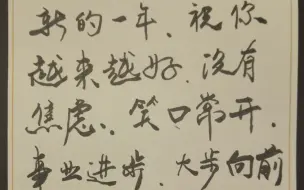 新的一年、祝你
越来越好.没有
焦虑、笑口常开,
事业进步、大步向前